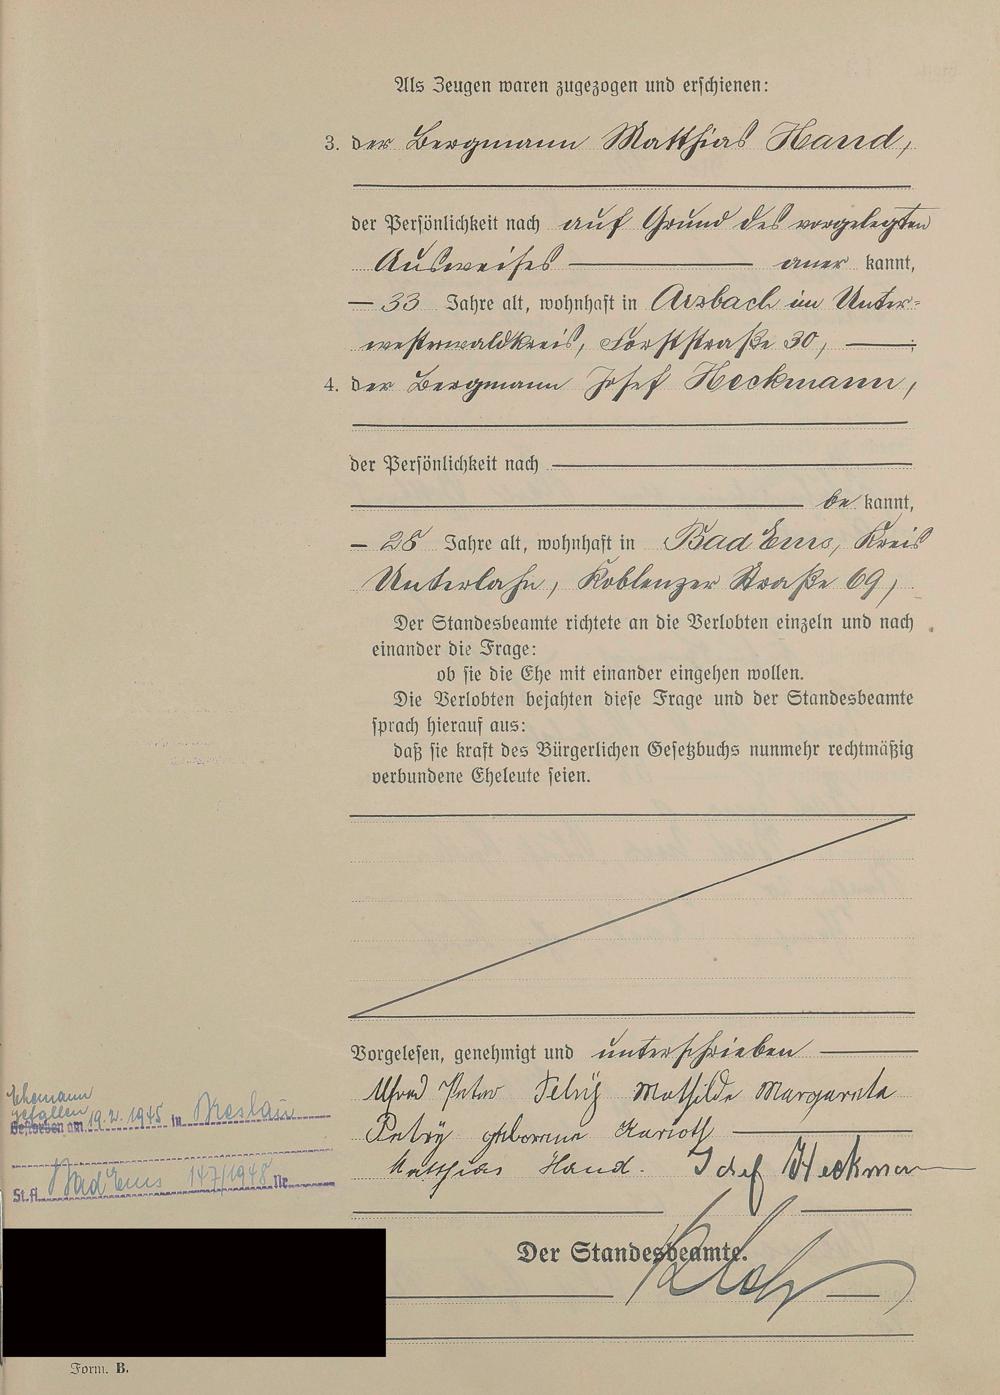 Als Zeugen waren zugezogen und erschienen:
3. der Bergmann Matthias Hand,
der Persönlichkeit nach auf Grund des vorgelegten
Ausweises aner kannt,
33 Jahre alt, wohnhaft in Arzbach im Unter-
westerwaldkreis, Forststraße 30,
4. der Bergmann Josef Heckmann,
der Persönlichkeit nach
be kannt,
28 Jahre alt, wohnhaft in Bad Ems, Kreis
Unterlahn, Koblenzer Straße 69,
Der Standesbeamte richtete an die Verlobten einzeln und nach
einander die Frage:
ob sie die Ehe mit einander eingehen wollen.
Die Verlobten bejahten diese Frage und der Standesbeamte
sprach hierauf aus:
daß sie kraft des Bürgerlichen Gesetzbuchs nunmehr rechtmäßig
verbundene Eheleute seien.
Vorgelesen, genehmigt und unterschrieben
Alfred Peter Petry Mathilde Margareta
Petry geborene Karioth
Matthias Hand. Josef Heckmann
Der Standesbeamte.
Ehemann
gefallen
Gestorben am 19.2.1945 in Breslau
St.A. Bad Ems 147/1948 Nr.
Form. B.